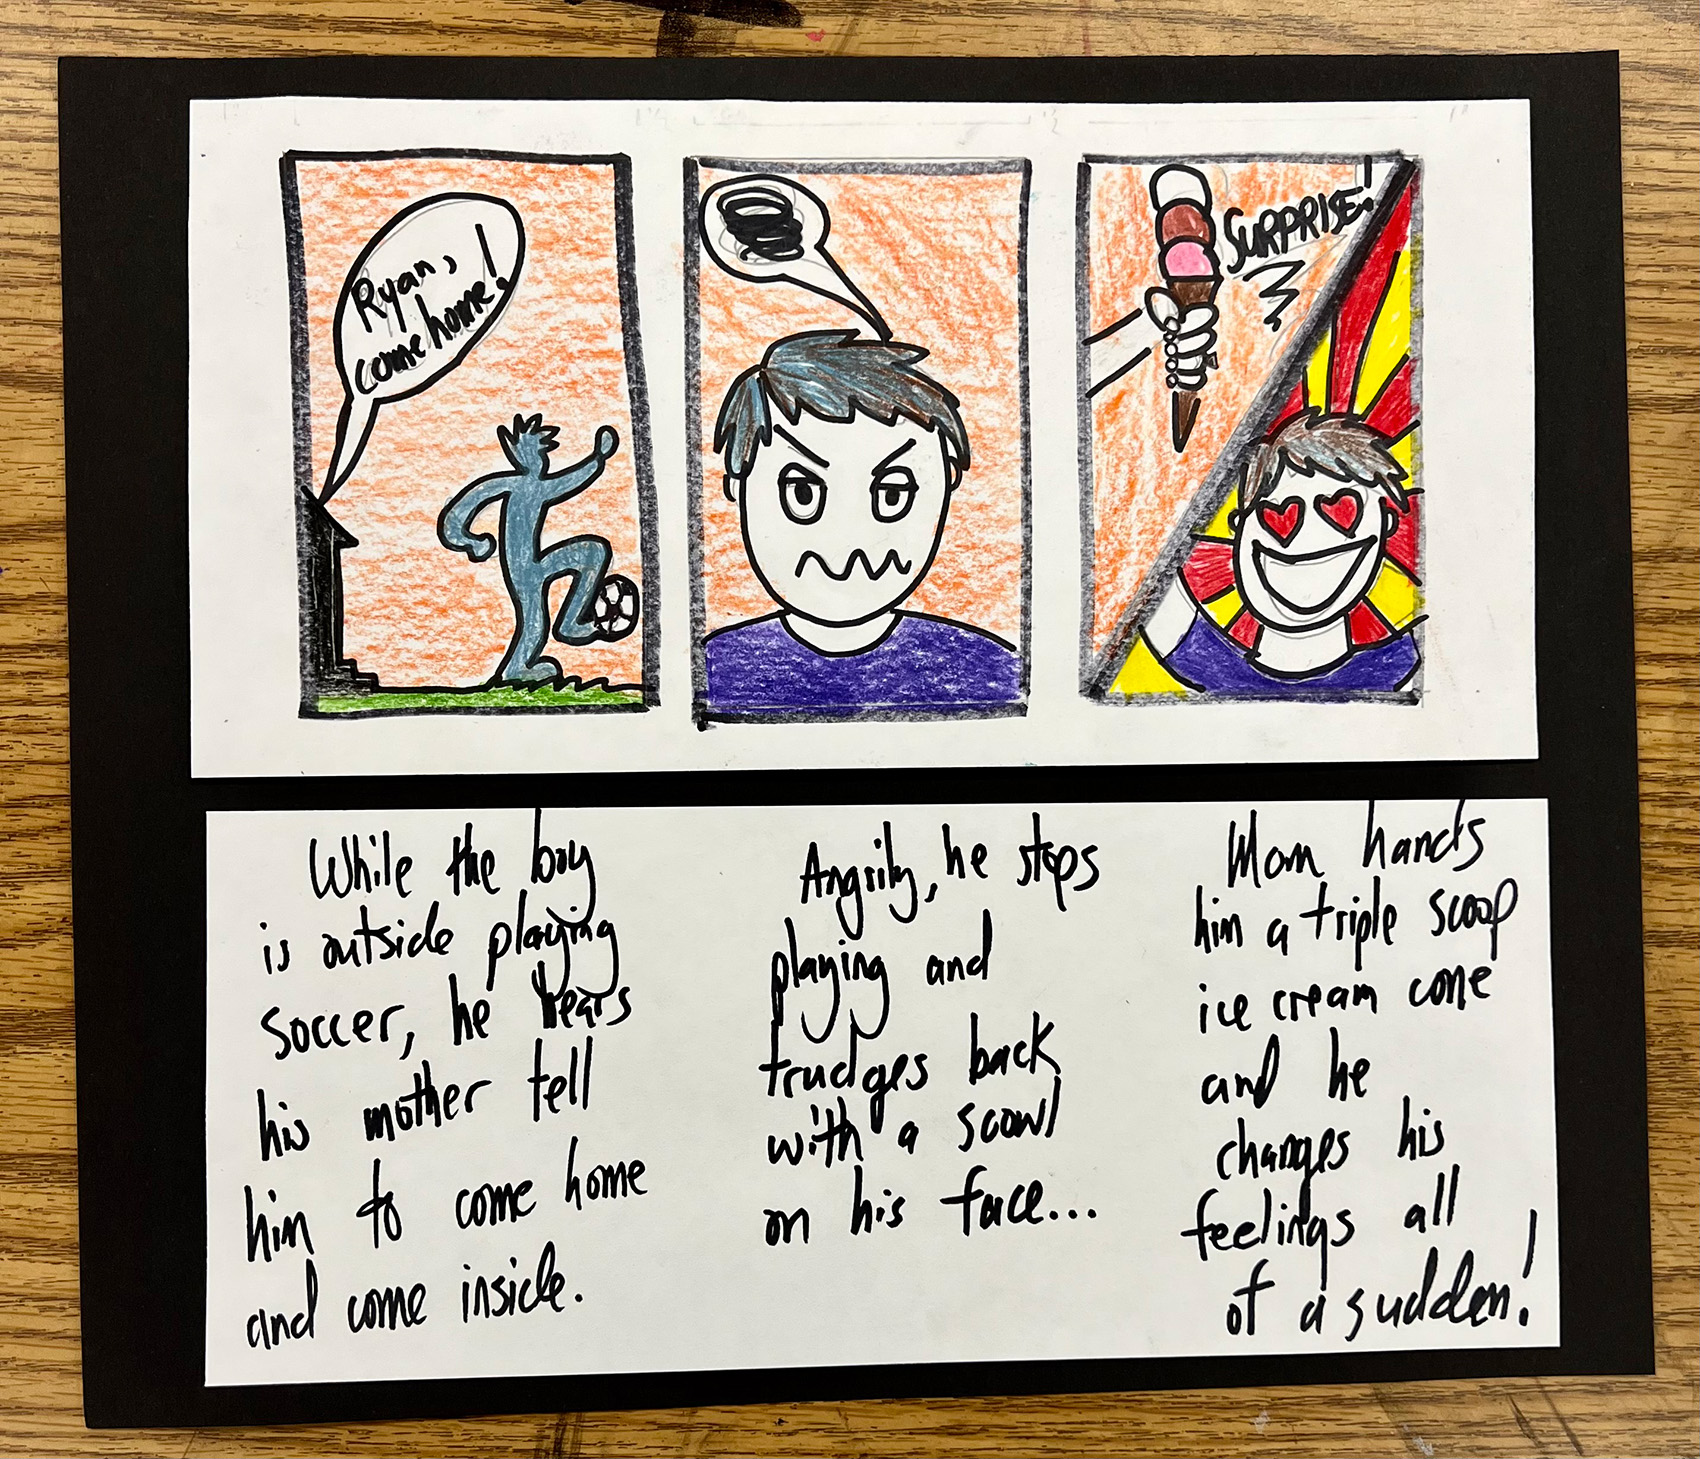 Ryan,
come home!
SURPRISE!
While the boy
is outside playing
soccer, he hears
his mother tell
him to come home
and come inside.
Angrily, he stops
playing and
trudges back
with a scowl
on his face...
Mom hands
him a triple scoop
ice cream cone
and he
changes his
feelings all
of a sudden!